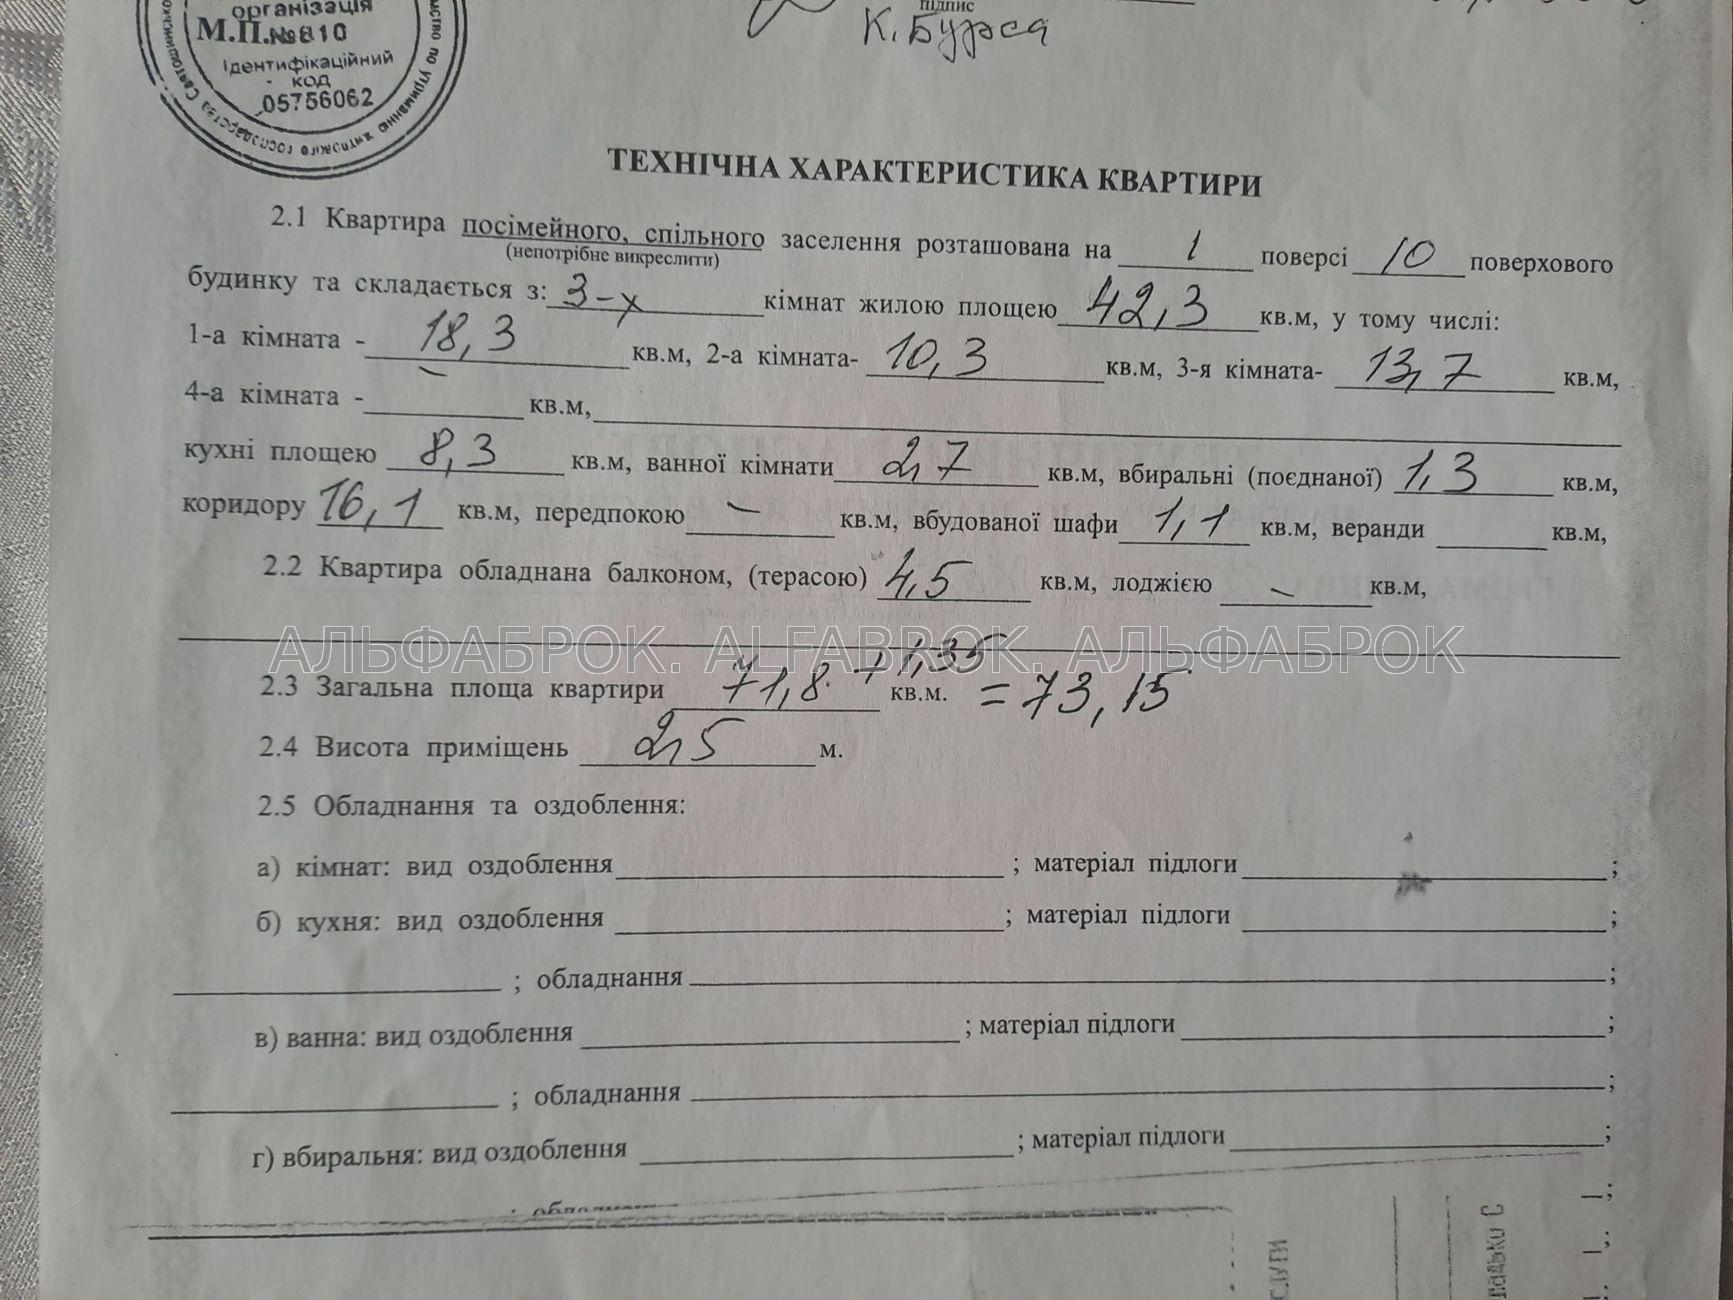 організація
М.П.№810
Ідентифікаційний
код
05756062
підпис
К. Бурса
ТЕХНІЧНА ХАРАКТЕРИСТИКА КВАРТИРИ
2.1 Квартира посімейного, спільного заселення розташована на 1 поверсі 10 поверхового
(непотрібне викреслити)
будинку та складається з: 3-х кімнат жилою площею 42,3 кв.м, у тому числі:
1-а кімната - 18,3 кв.м, 2-а кімната- 10,3 кв.м, 3-я кімната- 13,7 кв.м,
4-а кімната - – кв.м,
кухні площею 8,3 кв.м, ванної кімнати 2,7 кв.м, вбиральні (поєднаної) 1,3 кв.м,
коридору 16,1 кв.м, передпокою – кв.м, вбудованої шафи 1,1 кв.м, веранди кв.м,
2.2 Квартира обладнана балконом, (терасою) 4,5 кв.м, лоджією – кв.м,
АЛЬФАБРОК. ALFABROK. АЛЬФАБРОК
2.3 Загальна площа квартири 71,8 + 1,35 кв.м. = 73,15
2.4 Висота приміщень 2,5 м.
2.5 Обладнання та оздоблення:
а) кімнат: вид оздоблення ; матеріал підлоги ;
б) кухня: вид оздоблення ; матеріал підлоги ;
; обладнання ;
в) ванна: вид оздоблення ; матеріал підлоги ;
; обладнання ;
г) вбиральня: вид оздоблення ; матеріал підлоги ;